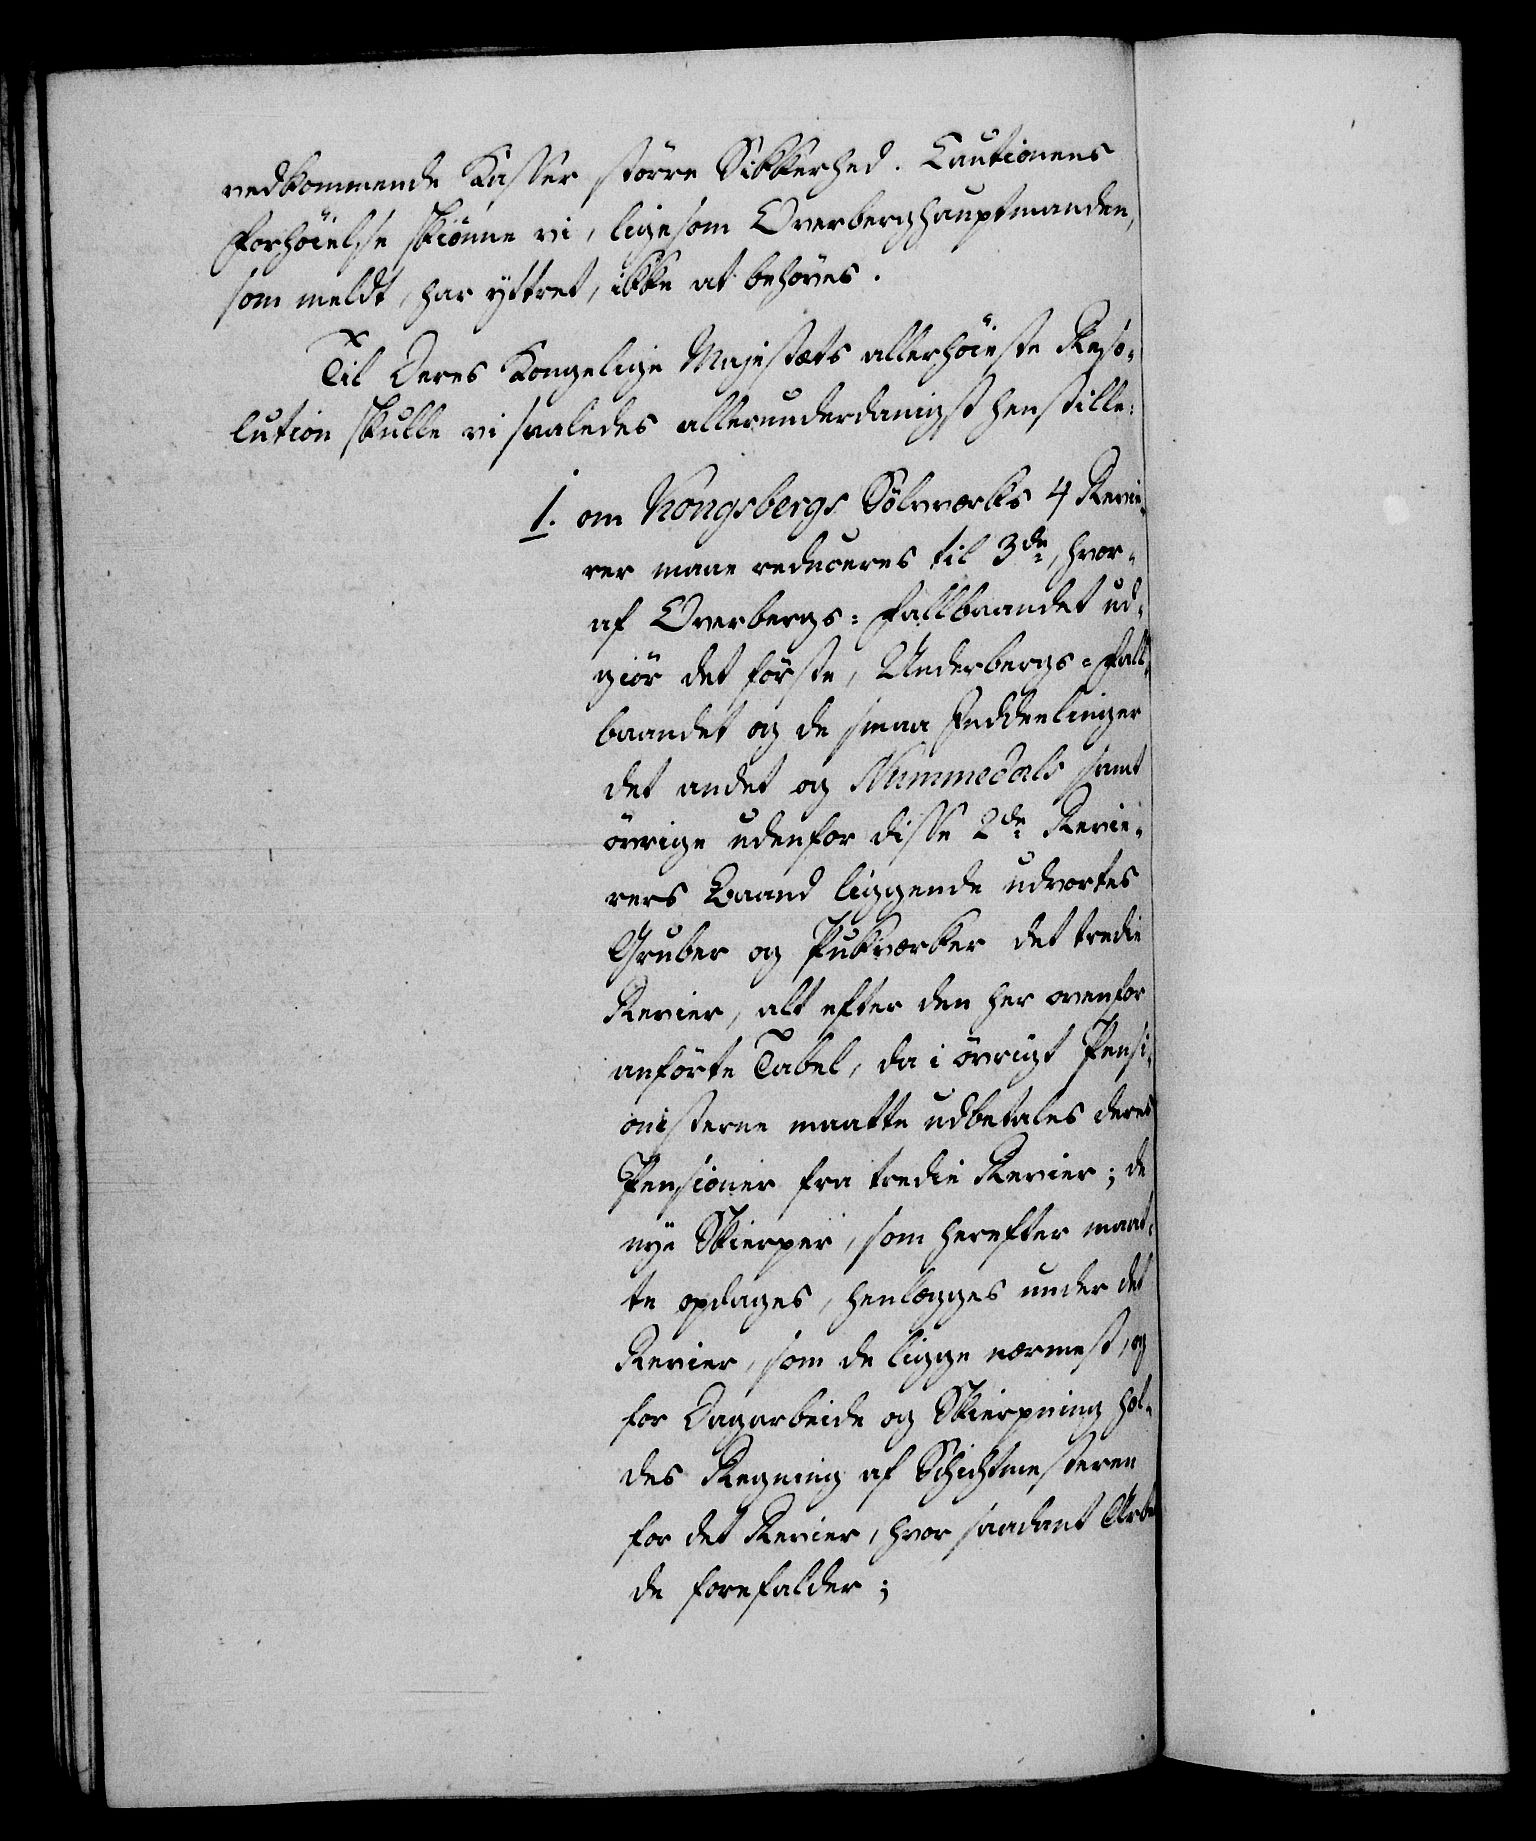 vedkommende Kasser større Sikkerhed. Cautionens
Forhöielse skiönne vi, ligesom Overberghauptmanden,
som meldt, har yttret, ikke at behöves.
Til Deres Kongelige Majestæts allerhöieste Reso-
lution skulle vi saaledes allerunderdanigst henstille:
1. om Kongsbergs Sölvværks 4 Revie-
rer maae reduceres til 3de, hvor-
af Overbergs-Fallbaandet ud-
giör det förste, Underbergs-Fall-
baandet og de smaa Inddeelinger
det andet og Nummedals samt
övrige udenfor disse 2de Revie-
rers Baand liggende udvortes
Gruber og Pukværker det tredie
Revier, alt efter den her ovenfor
anförte Tabel, da i övrigt Pensi-
onisterne maatte udbetales deres
Pensioner fra tredie Revier; de
nye Skierper, som herefter maat-
te opdages, henlægges under det
Revier, som de ligge nærmest, og
for Dagarbeide og Skierpning hol-
des Regning af Schichtmesteren
for det Revier, hvor saadant Arbei
de forefalder;